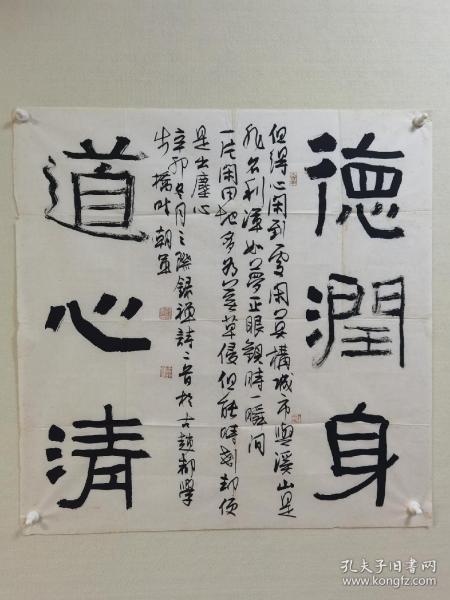 德潤身
但得心閑到處閑莫構城市與溪山是
非名利渾如夢正眼觀時一瞬間
一片閑田地多為荒草侵但能時刻却便
是出塵心
辛卯 月之際錄禪詩二首於古趙都學
步橋叶朝
道心清
孔夫子旧书网
www.kongfz.com